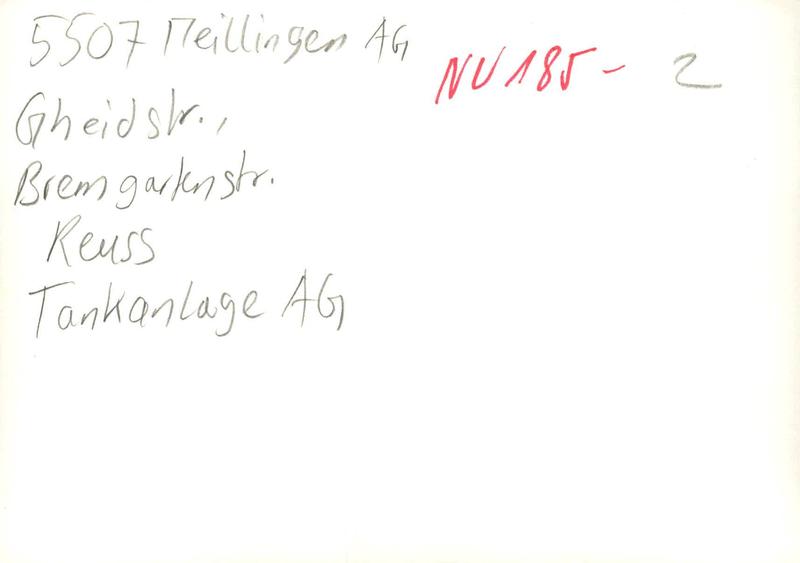 5507 Meillingen AG
NU 185 - 2
Gheidstr.,
Bremgartenstr.
Reuss
Tankanlage AG